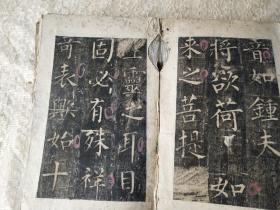 音如鍾夫
將欲荷如
來之菩提
生靈之耳目
固必有殊祥
奇表歟始十